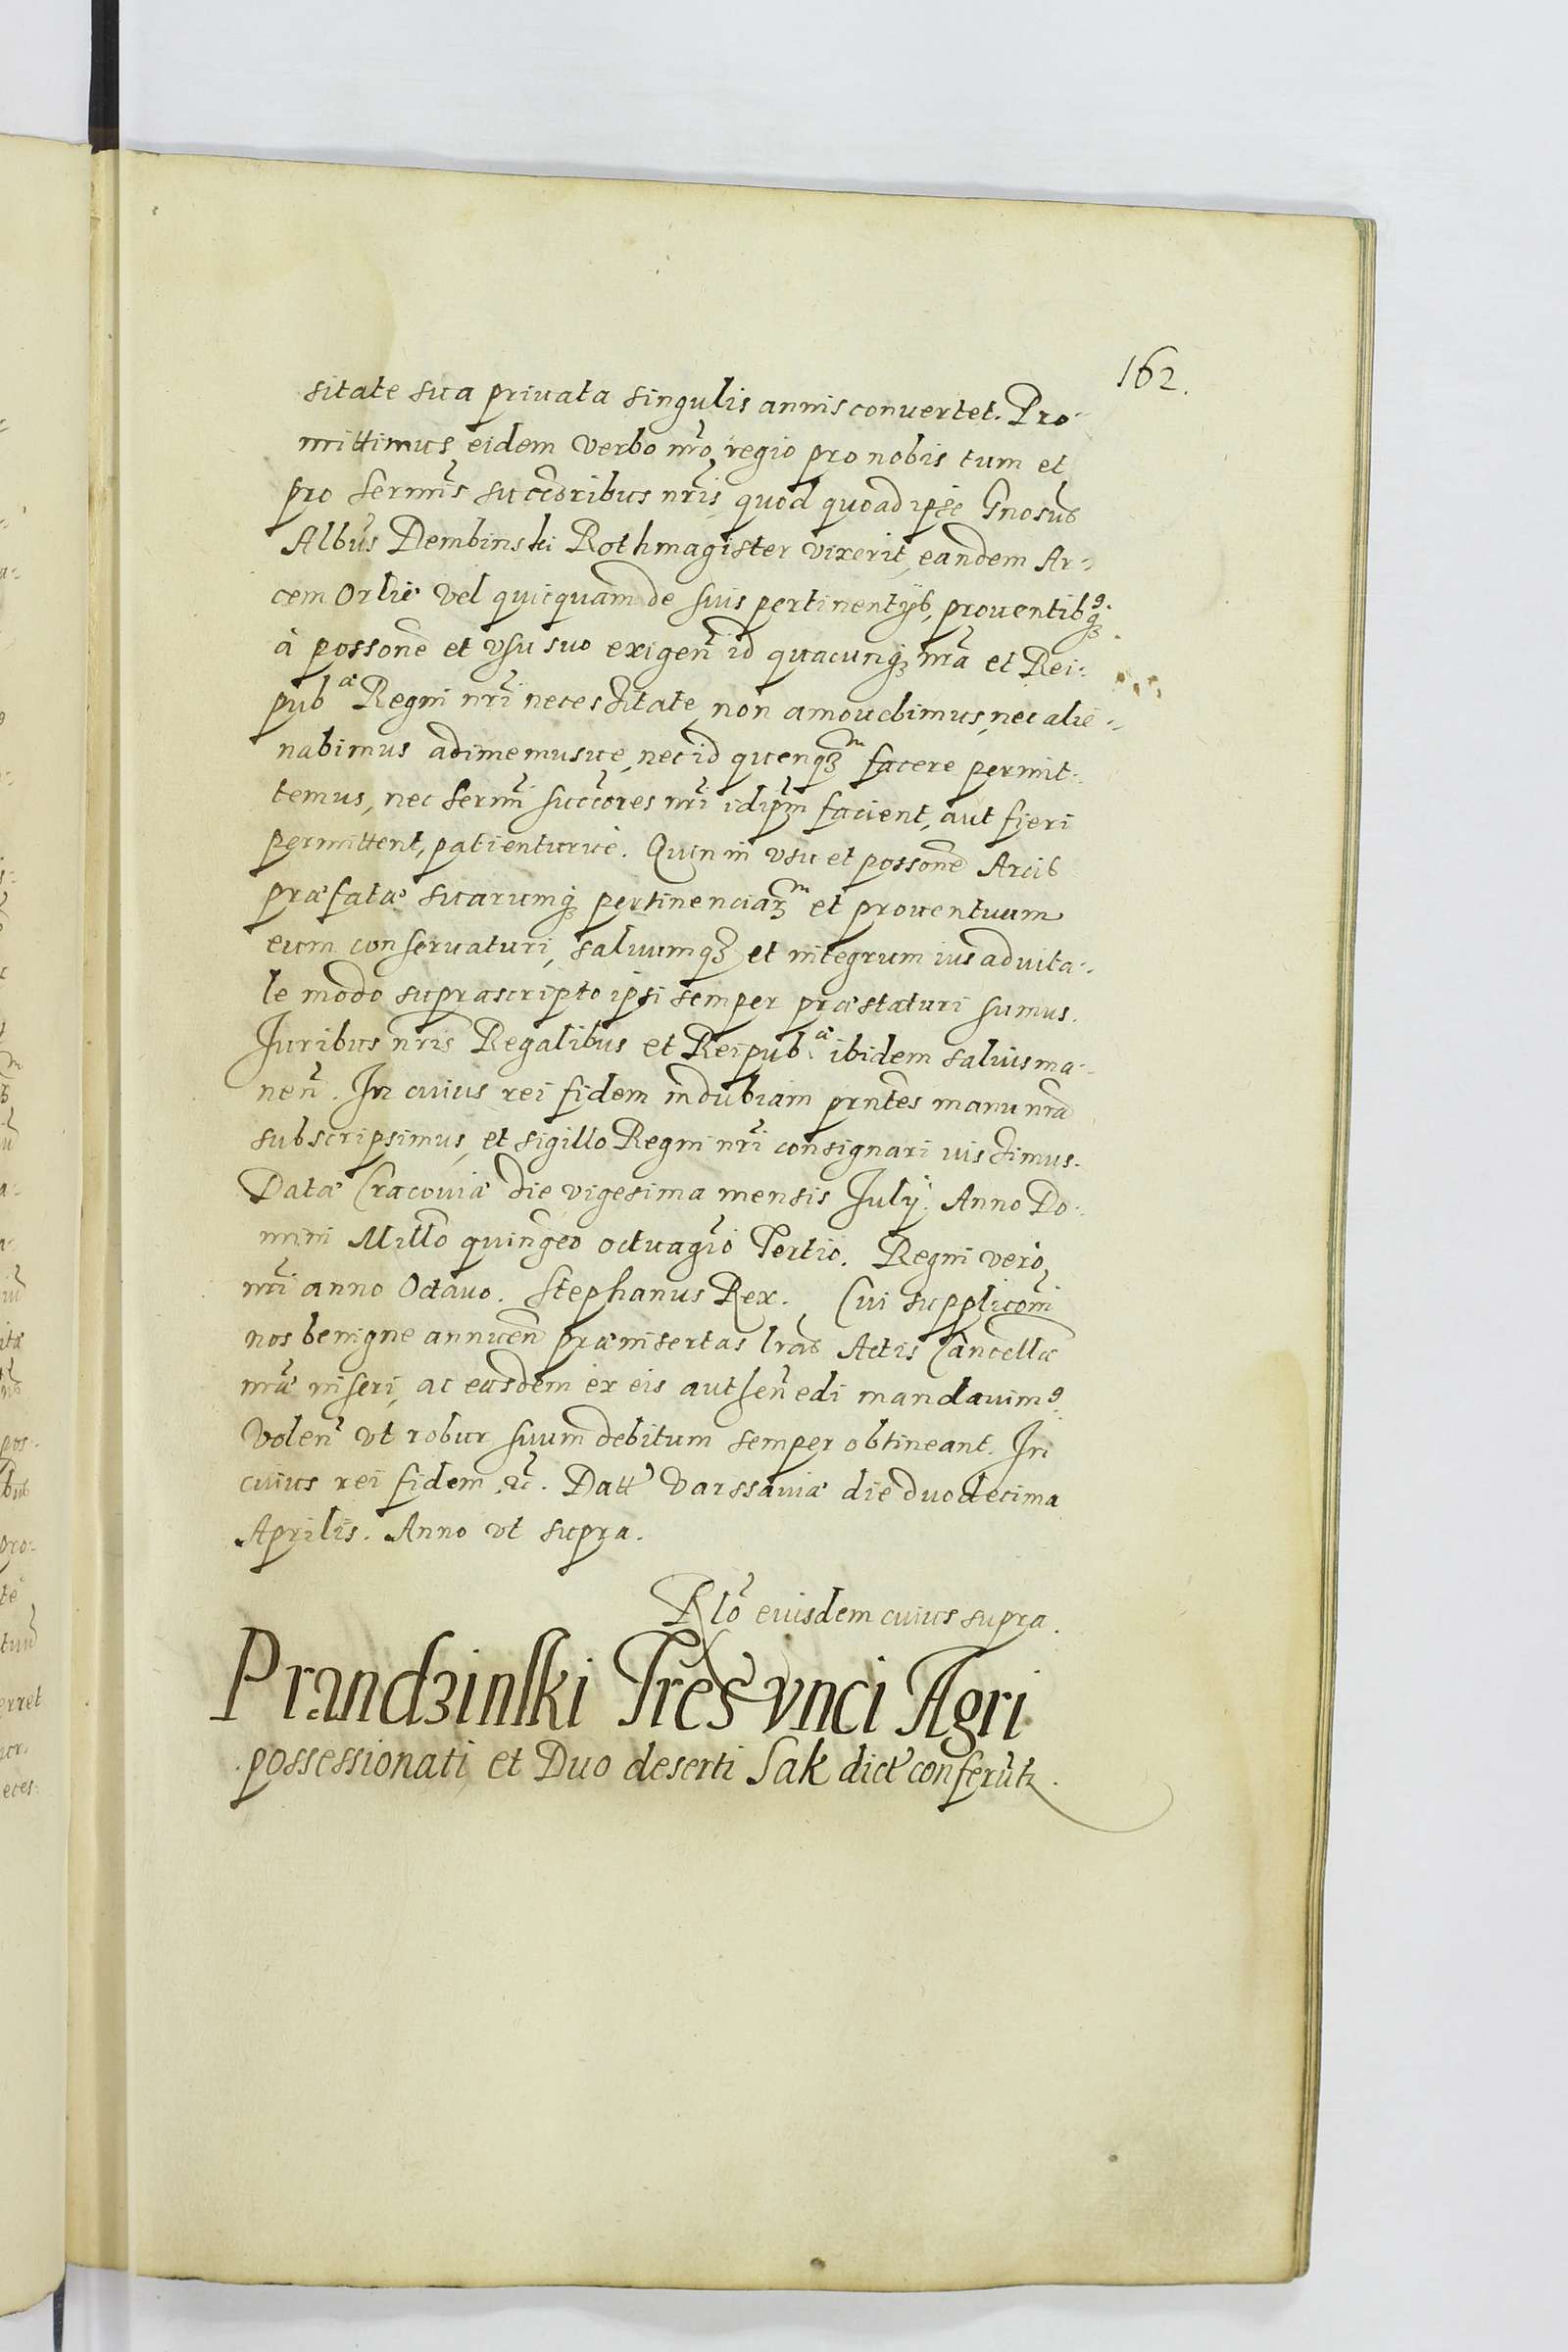 162.
sitate sua priuata singulis annis conuertet. Pro-
mittimus eidem verbo nr̃o regio pro nobis tum et
pro Sermĩs succẽoribus nr̃is, quod quoad ipse Gnosus
Albus̃ Dembinski Rothmagister vixerit, eandem Ar-
cem Orlie vel quicquam de suis pertinentÿs, prouentibꝰqꝫ
à possone et vsu suo exigen̄ id quacunqꝫ nr̃a et Rei-
pubᵃᵉ Regni nr̃i necessitate, non amouebimus, nec alie-
nabimus adimemusue, nec id quenqꝫᵐ facere permit-
temus, nec Sermĩ succẽores nr̃i idip̄m facient, aut fieri
permittent, patienturue. Quin in vsu et possone Arcis
præfatæ suarumqꝫ pertinenciaꝝᵐ et prouentuum
eum conseruaturi, saluumqꝫ et integrum ius aduita-
le modo suprascripto ipsi semper præstaturi sumus.
Juribus nr̃is Regalibus et Reipubᵃᵉ ibidem saluis ma-
nen̄. In cuius rei fidem indubiam prñtes manu nr̃a
subscripsimus, et sigillo Regni nr̃i consignari iussimus.
Datæ Cracouiæ die vigesima mensis Julÿ. Anno Do-
mini Millo quingeõ octuagiõ Tertio. Regni verò
nr̃i anno Octauo. Stephanus Rex. Cui supplicoñi
nos benigne annuen̄ præinsertas lr̃as Actis Cancellæ
nr̃æ inseri, ac easdem ex eis authen̄ edi mandauimꝰ
Volen̄ vt robur suum debitum semper obtineant. In
cuius rei fidem ꝛc̃. Datt Varssauiæ die duodecima
Aprilis. Anno vt supra.
Rlõ euisdem cuius supra.
Prandzinski Tres vnci Agri
possessionati et Duo deserti Sak dict conferũtr.